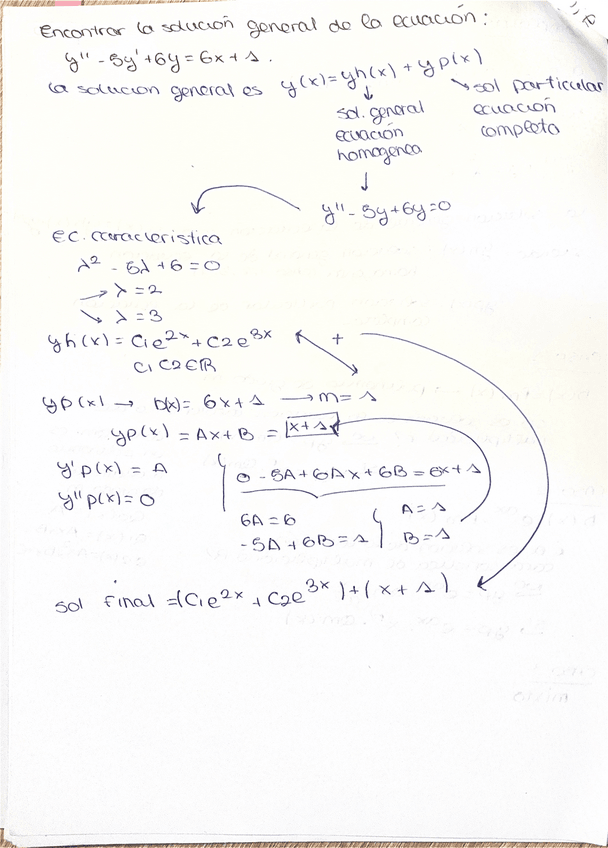 Encontrar la solución general de la ecuación:
y'' - 5y' + 6y = 6x + 1.
la solucion general es y(x) = yh(x) + yp(x)
sol. general
ecuación
homogenea
sol particular
ecuación
completa
y'' - 5y + 6y = 0
ec. caracteristica
λ² - 5λ + 6 = 0
→ λ = 2
↘ λ = 3
yh(x) = C1e^2x + C2e^3x +
C1 C2 ∈ ℝ
yp(x) → b(x) = 6x + 1 → m = 1
yp(x) = Ax + B = x + 1
y'p(x) = A
y''p(x) = 0
0 - 5A + 6Ax + 6B = 6x + 1
6A = 6
-5A + 6B = 1
A = 1
B = 1
sol final = (C1e^2x + C2e^3x) + (x + 1)